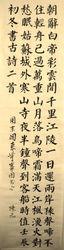 朝辭白帝彩雲間千里江陵一日還兩岸猿聲啼不
住輕舟已過萬重山月落烏啼霜滿天江楓漁火對
愁眠姑蘇城外寒山寺夜半鐘聲到客船
初冬書古詩二首